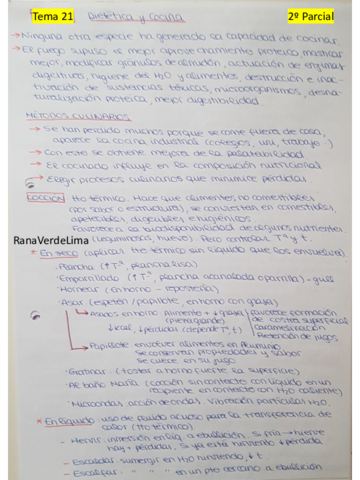 Tema 21 Dietética y Cocina 2º Parcial
→ Ninguna otra especie ha generado la capacidad de cocinar.
→ El fuego supuso la mejor aprovechamiento proteico, masticar
mejor, modificar gránulos de almidón, actuación de enzimas
digestivas, higiene del H2O y alimentos, destrucción e inac-
tivación de sustancias tóxicas, microorganismos, desna-
turalización proteica, mejor digestibilidad.
MÉTODOS CULINARIOS
→ Se han perdido muchos porque se come fuera de casa,
aparece la cocina industrial (colegios, uni, trabajo..)
→ Con esto se obtiene mejora de la palatabilidad
→ El cocinado influye en la composición nutricional
→ Elegir procesos culinarios que minimice pérdidas
COCCIÓN Tto térmico. Hace que alimentos no comestibles
(por sabor o estructura), se conviertan en comestibles,
apetecibles, digeribles e higiénicos.
Favorece a la biodisponibilidad de algunos nutrientes
RanaVerdeLima (leguminosas, huevo). Pero controlar Tª y t.
* En seco (aplicar tto térmico sin líquido que los envuelva).
- Plancha (↑Tª, plancha lisa)
- Emparrillado (↑Tª, plancha acanalada o parrilla) - grill
- Hornear (en horno - repostería)
- Asar (espetón / papillote, en horno con grasa)
→ Asados en horno Alimento + ↓ grasa
favorece formación
de costra superficial
caramelización
Retención de jugos
↓ kcal, ↓ pérdidas (depende Tª, t)
→ Papillote envolver alimentos en Aluminio
Se conservan propiedades y sabor
Se cuece en su jugo
- Gratinar (tostar a horno fuerte la superficie)
- Al baño María (cocción sin contacto con líquido en un
recipiente en contacto con H2O caliente)
- Microondas, acción de ondas. Vibración partículas H2O.
* En líquido: uso de fluido acuoso para la transferencia de
calor (tto térmico)
- Hervir: inmersión en líq a ebullición. Si frío → hierve
hay + pérdidas. Si ya está hirviendo ↓ pérdidas
- Escaldar: sumergir en H2O hirviendo, ↓ t.
- Escalfar: " " en un pto cercano a ebullición